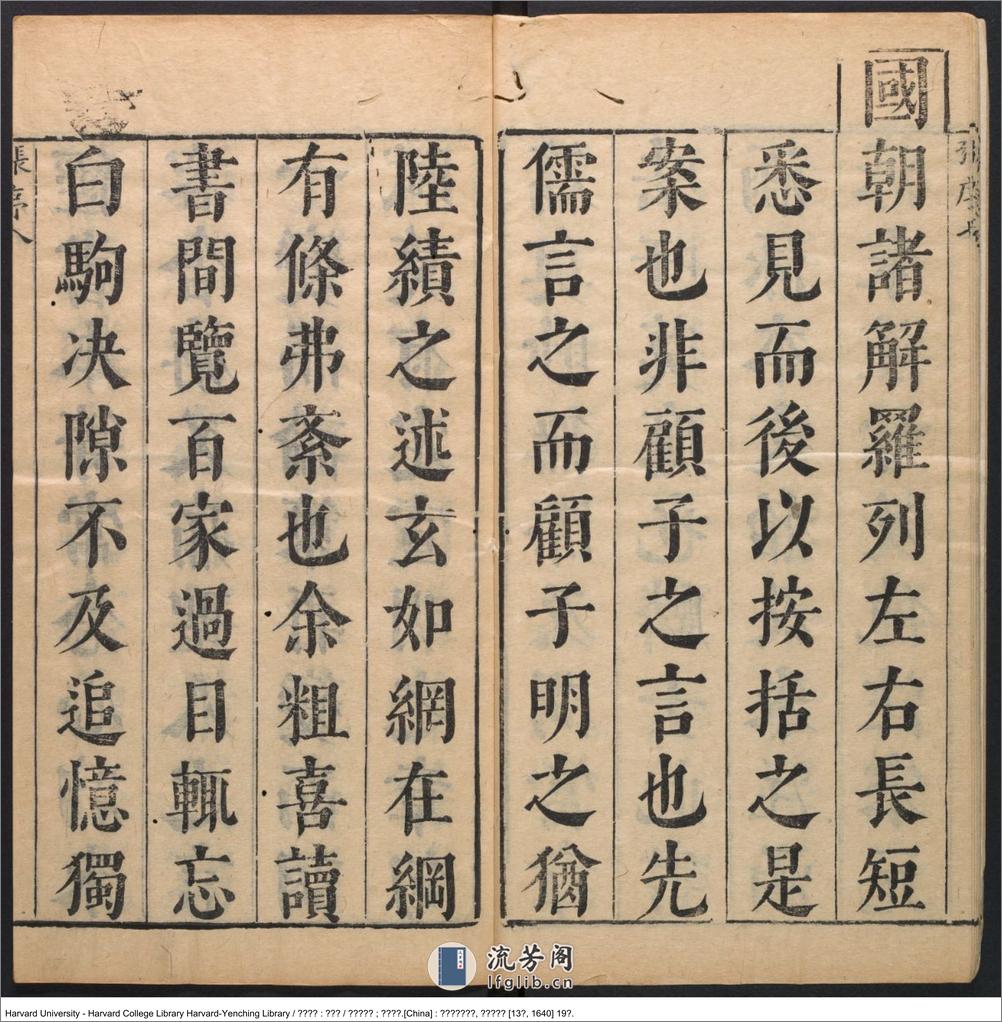 國朝諸解羅列左右長短
悉見而後以按括之是
案也非顧子之言也先
儒言之而顧子明之猶
陸績之述玄如網在綱
有條弗紊也余粗喜讀
書間覽百家過目輒忘
白駒决隙不及追憶獨
張序
流芳阁
lfglib.cn
Harvard University - Harvard College Library Harvard-Yenching Library / ???? : ??? / ????? ; ????.[China] : ???????, ????? [13?, 1640] 19?.